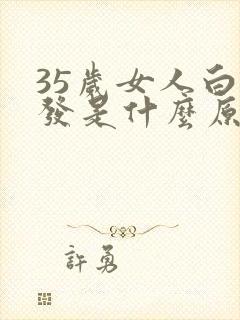 35歲女人白
發是什麼原
許勇